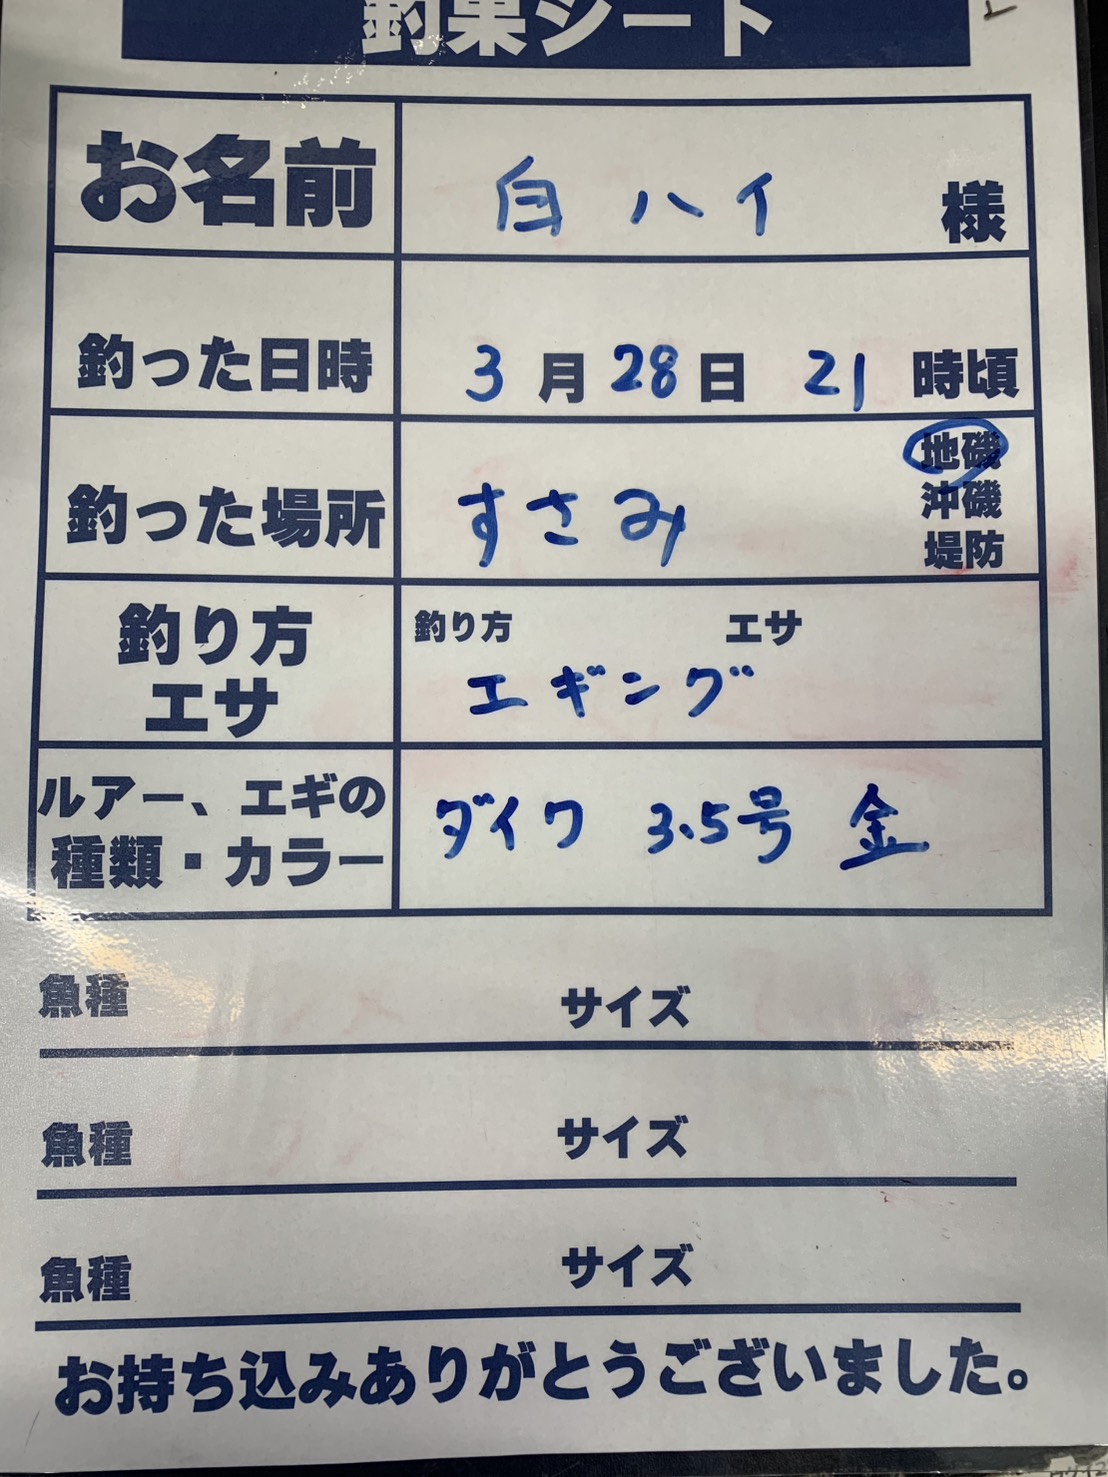 釣果シート
お名前 白ハイ 様
釣った日時 3月28日 21時頃
釣った場所 すさみ 地磯
沖磯
堤防
釣り方 エサ
釣り方 エサ
エギング
ルアー、エギの種類・カラー ダイワ 3.5号 金
魚種 サイズ
魚種 サイズ
魚種 サイズ
お持ち込みありがとうございました。